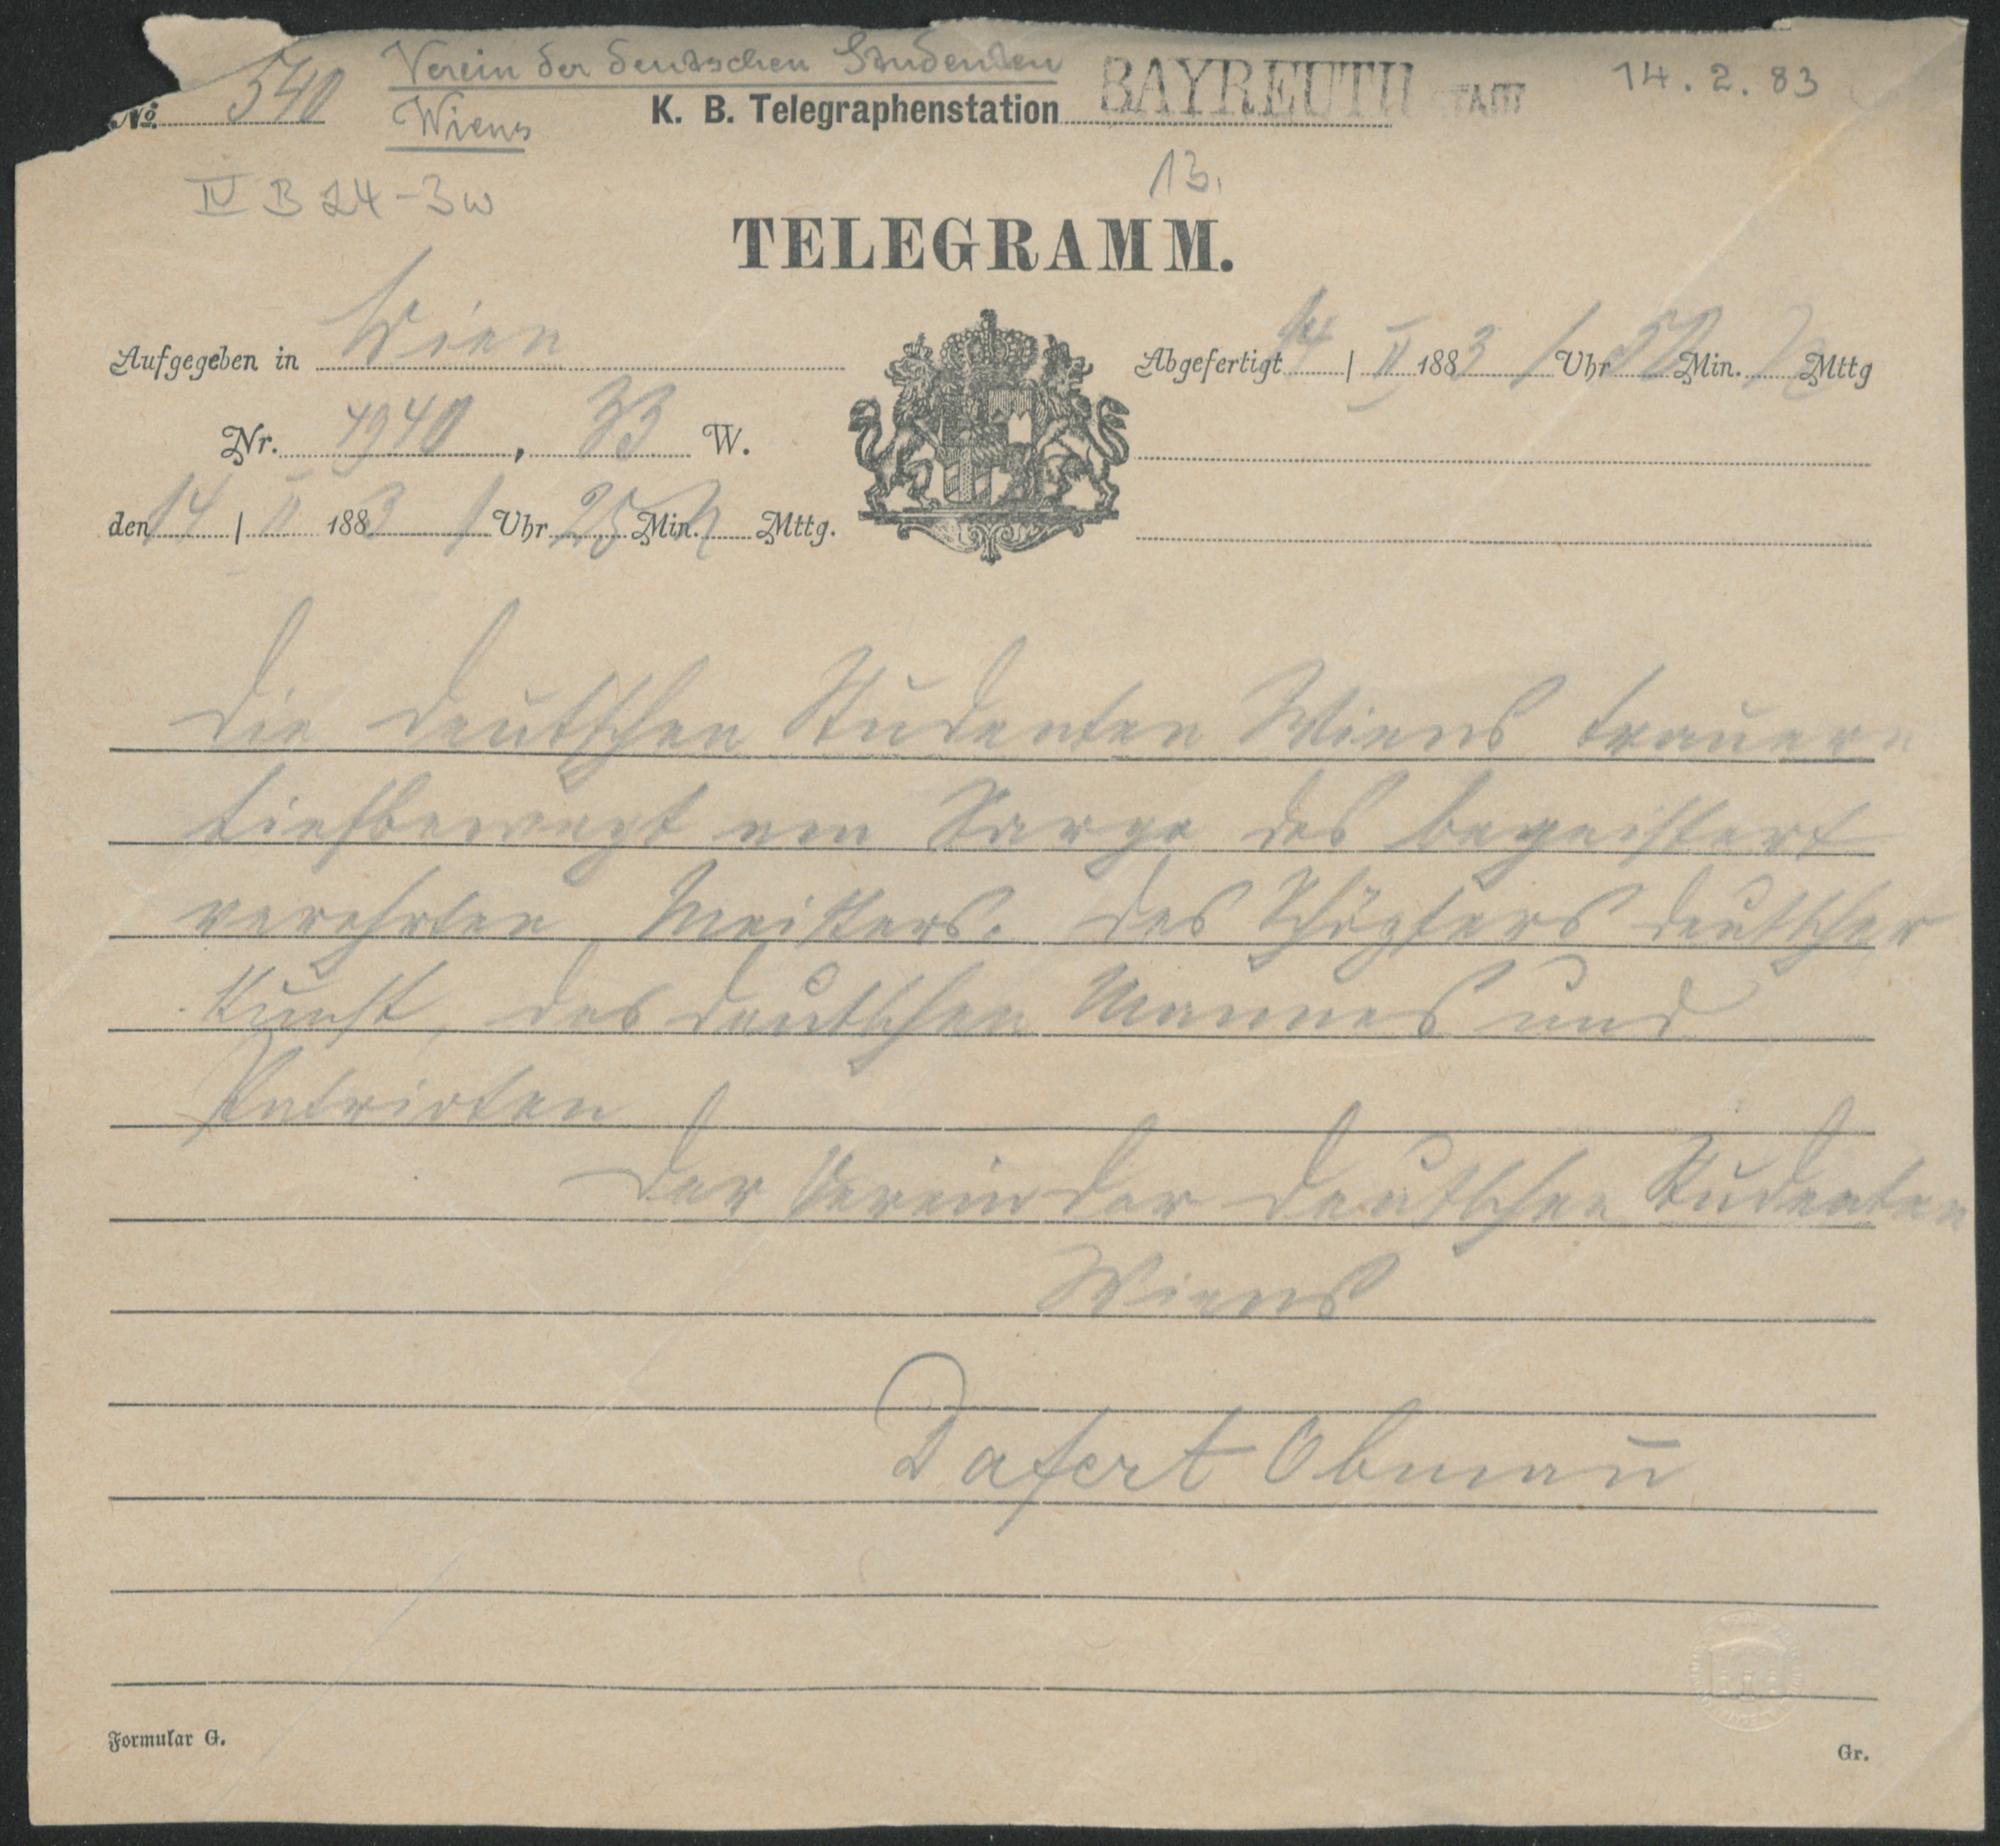 Verein der deutschen Studenten
No. 540
Wiens
K. B. Telegraphenstation BAYREUTH STADT
14. 2. 83
IV B 24-3w
13.
TELEGRAMM.
Aufgegeben in Wien
Abgefertigt 14 / II 1883 1 Uhr 50 Min. Mttg
Nr. 4940, 33 W.
den 14 / II 1883 1 Uhr 25 Min. Mttg.
Die deutschen Studenten Wiens trauern
tiefbewegt am Sarge des begeistert
verehrten Meisters. des Schöpfers deutscher
Kunst, des deutschen Mannes und
Patrioten
Der Verein der deutschen Studenten
Wiens
Dafert Obman̄
Formular G.
Gr.